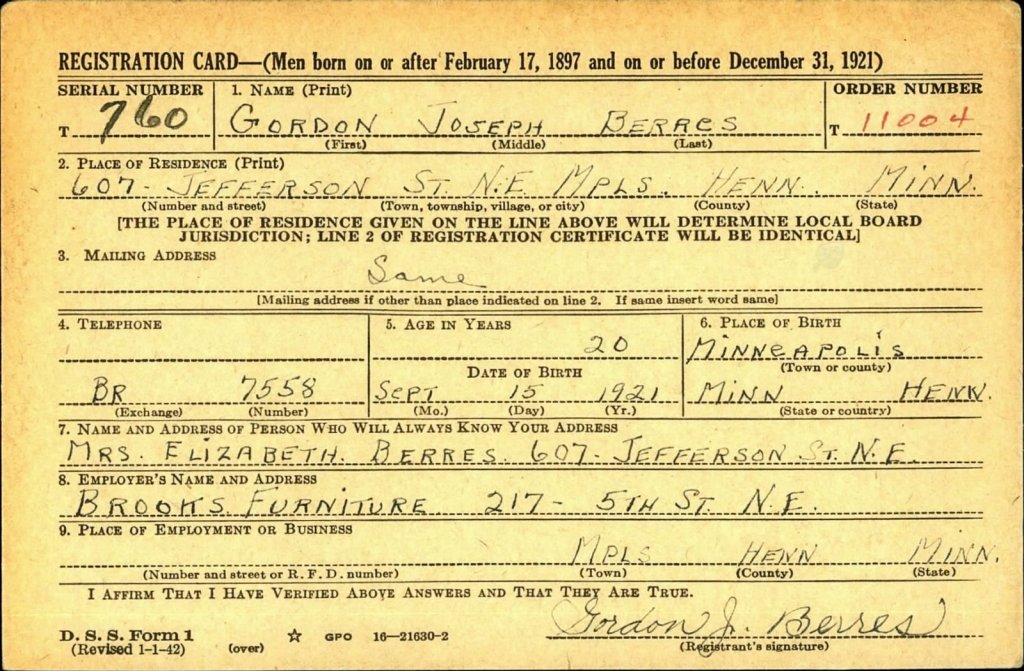 REGISTRATION CARD—(Men born on or after February 17, 1897 and on or before December 31, 1921)
SERIAL NUMBER 1. NAME (Print) ORDER NUMBER
T 760 GORDON JOSEPH BERRES T 11004
(First) (Middle) (Last)
2. PLACE OF RESIDENCE (Print)
607- JEFFERSON ST. N.E MPLS. HENN. MINN.
(Number and street) (Town, township, village, or city) (County) (State)
[THE PLACE OF RESIDENCE GIVEN ON THE LINE ABOVE WILL DETERMINE LOCAL BOARD
JURISDICTION; LINE 2 OF REGISTRATION CERTIFICATE WILL BE IDENTICAL]
3. MAILING ADDRESS
Same
[Mailing address if other than place indicated on line 2. If same insert word same]
4. TELEPHONE 5. AGE IN YEARS 6. PLACE OF BIRTH
20 MINNEAPOLIS
DATE OF BIRTH (Town or county)
BR 7558 SEPT 15 1921 MINN HENN.
(Exchange) (Number) (Mo.) (Day) (Yr.) (State or country)
7. NAME AND ADDRESS OF PERSON WHO WILL ALWAYS KNOW YOUR ADDRESS
MRS. ELIZABETH. BERRES. 607- JEFFERSON ST. N.E.
8. EMPLOYER'S NAME AND ADDRESS
BROOKS FURNITURE 217- 5TH ST. N.E.
9. PLACE OF EMPLOYMENT OR BUSINESS
MPLS HENN MINN.
(Number and street or R. F. D. number) (Town) (County) (State)
I AFFIRM THAT I HAVE VERIFIED ABOVE ANSWERS AND THAT THEY ARE TRUE.
Gordon J. Berres
D. S. S. Form 1 GPO 16—21630-2
(Revised 1-1-42) (over) (Registrant's signature)